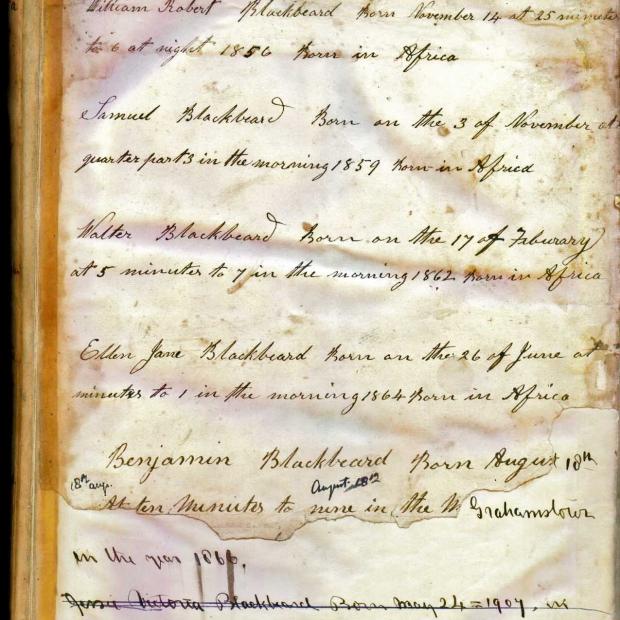 William Robert Blackbeard Born November 14 at 25 minutes
to 6 at night 1856 Born in Africa
Samuel Blackbeard Born on the 3 of November at
quarter part 3 in the morning 1859 Born in Africa
Walter Blackbeard Born on the 17 of Faburary
at 5 minutes to 7 in the morning 1862 Born in Africa
Ellen Jane Blackbeard Born on the 26 of June at
minutes to 1 in the morning 1864 Born in Africa
Benjamin Blackbeard Born August 18th
18th augs. August 18th
At ten Minutes to nine in the M Grahamstown
in the year 1866,
Jessie Victoria Blackbeard Born May 24 = 1907, in